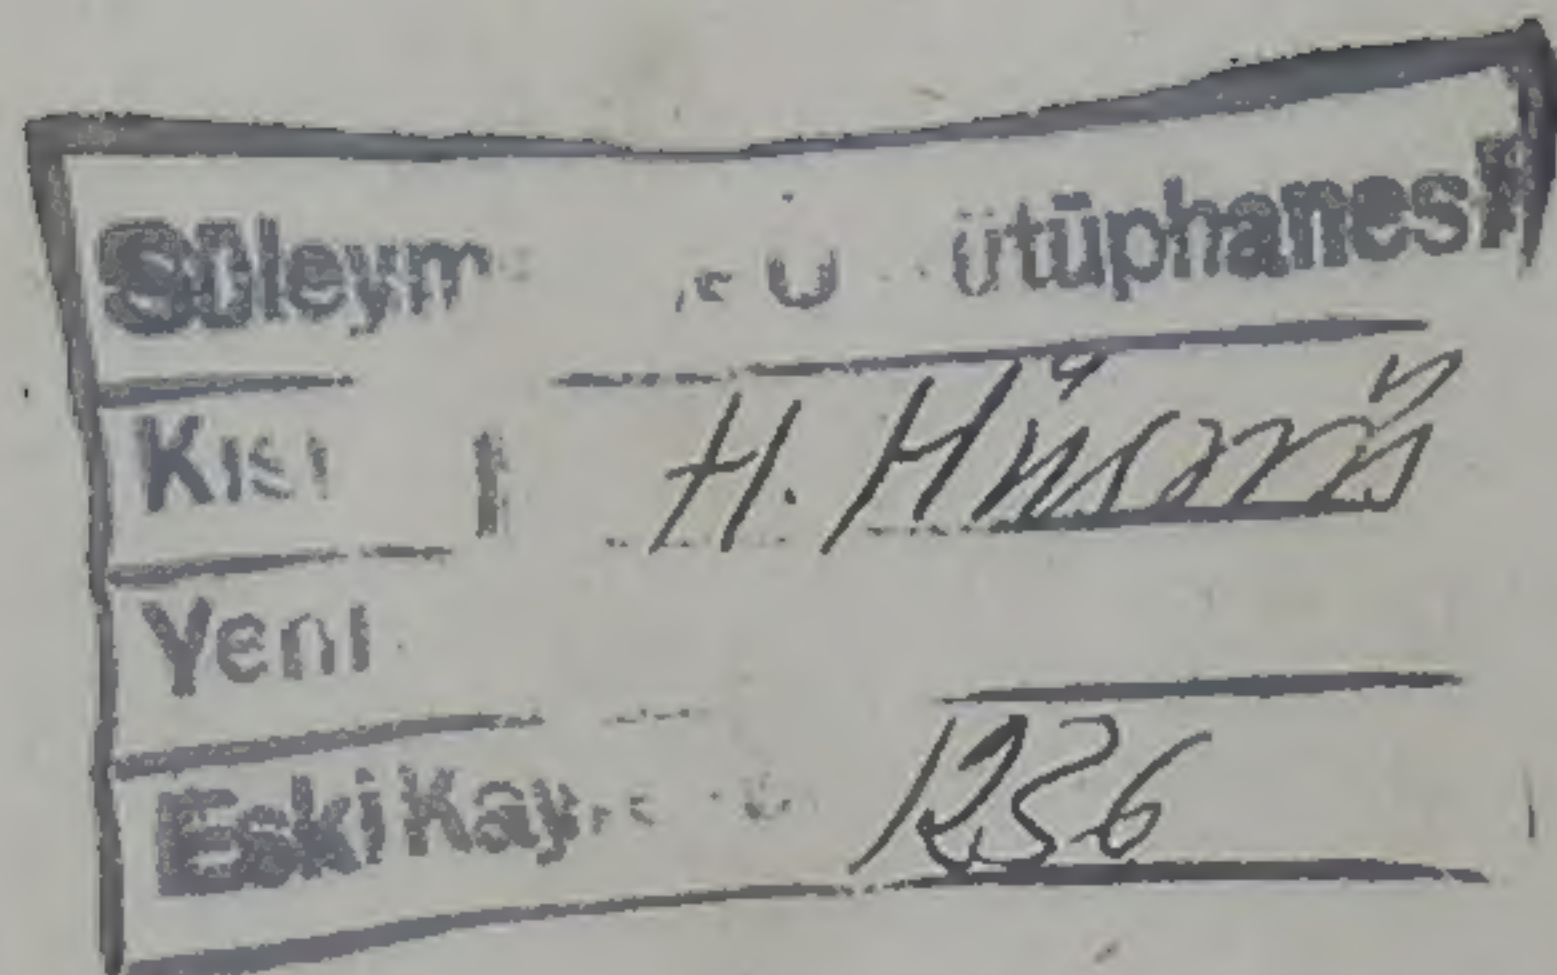 Süleym ü ütüphanesi
Kısı H. Hüsnü
Yeni
Eski Kay 1236